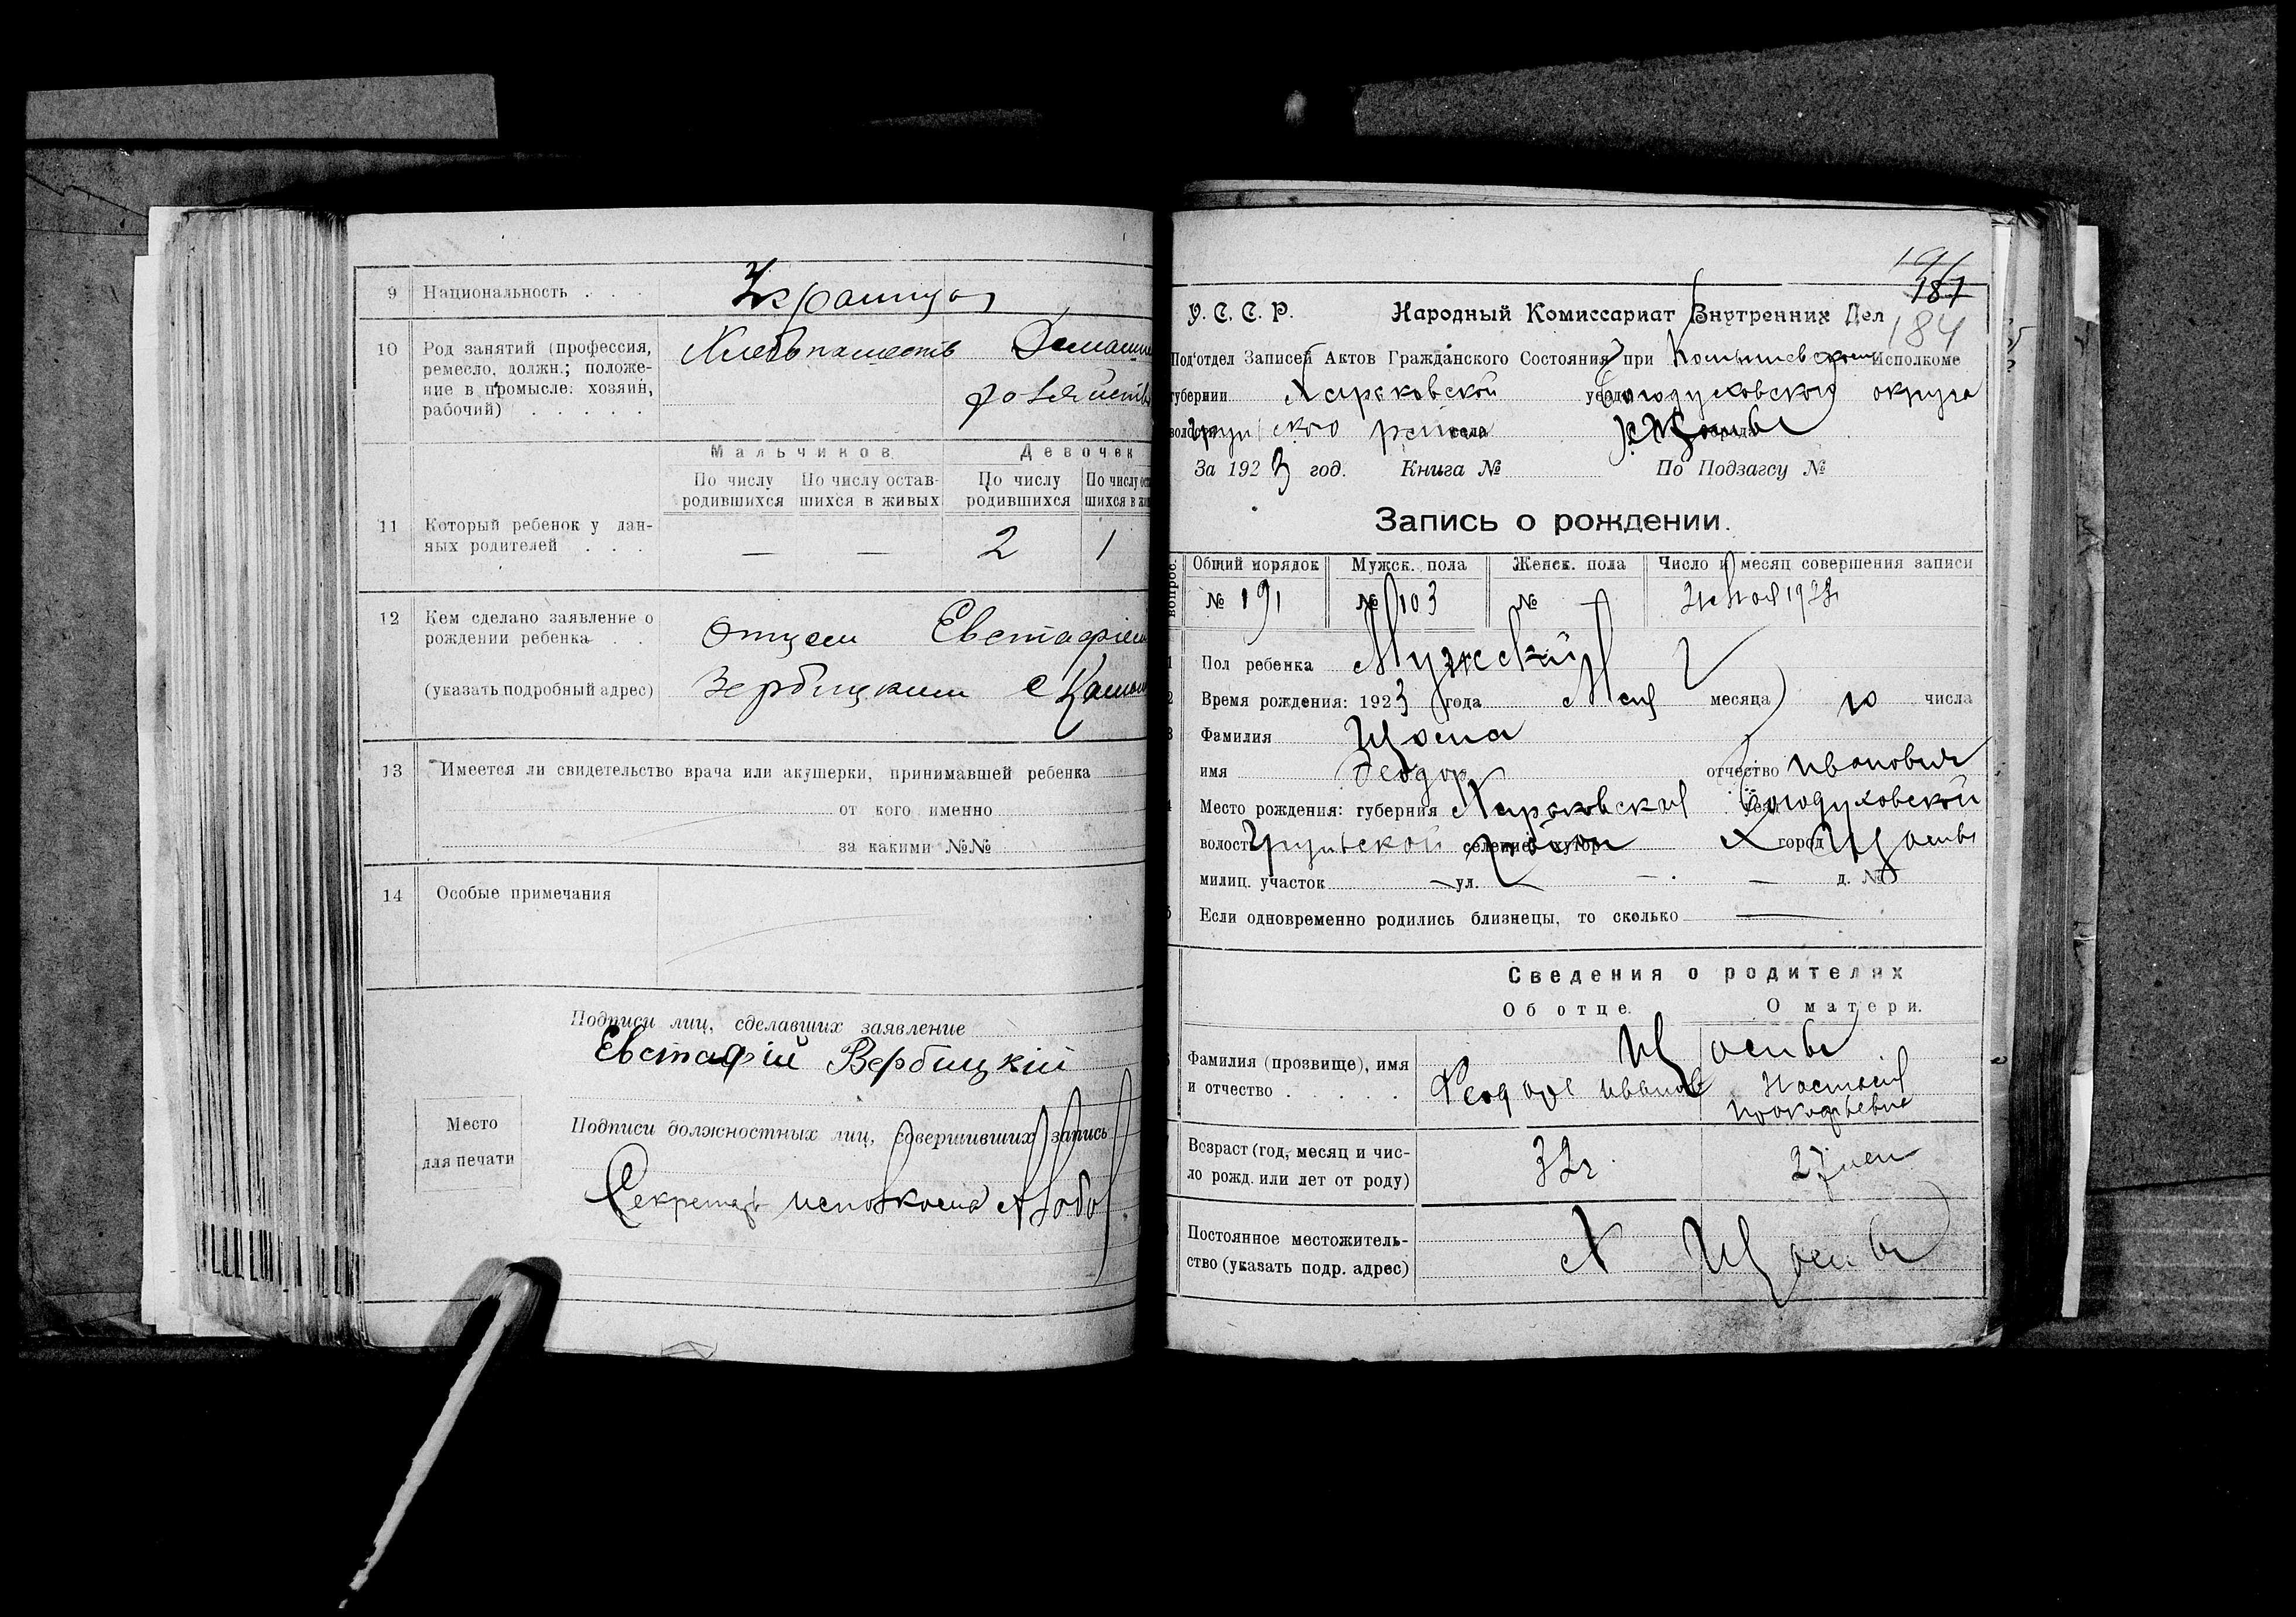 9 Национальность . . . Украинцы
10 Род занятий (профессия, ремесло, должн.; положение в промысле: хозяин, рабочий) . . . . . Хлебопашеств Домашн
хозяйств
Мальчиков Девочек
По числу родившихся По числу оставшихся в живых По числу родившихся По числу ост шихся в жи
11 Который ребенок у данных родителей . . . — — 2 1
12 Кем сделано заявление о рождении ребенка . . Отцем Евстафием
(указать подробный адрес) Вербицким с
13 Имеется ли свидетельство врача или акушерки, принимавшей ребенка
от кого именно
за какими №№
14 Особые примечания
Подписи лиц, сделавших заявление
Евстафій Вербицкій
Место для печати
Подписи должностных лиц, совершивших запись
Секретарь исполкома
191
187
184
У. С. С. Р. Народный Комиссариат Внутренних Дел
Под'отдел Записей Актов Гражданского Состояния при Исполкоме
губернии Харьковской уезда Богодуховского округа
волости села города
За 1923 год. Книга № По Подзагсу №
Запись о рождении.
вопрос. Общий порядок Мужск. пола Женск. пола Число и месяц совершения записи
№ 191 № 103 № —
Пол ребенка Мужской
Время рождения: 1923 года Мая месяца 10 числа
Фамилия
имя Феодор отчество Иванович
Место рождения: губерния Харьковская уезд Богодуховской
волость селение, хутор город
милиц. участок — ул. — — д. №
Если одновременно родились близнецы, то сколько —
Сведения о родителях
Об отце. О матери.
Фамилия (прозвище), имя и отчество . . . . .
Иванов Настасия
Прокофьевна
Возраст (год, месяц и число рожд. или лет от роду) 32г. 27 лет
Постоянное местожительство (указать подр. адрес) Х